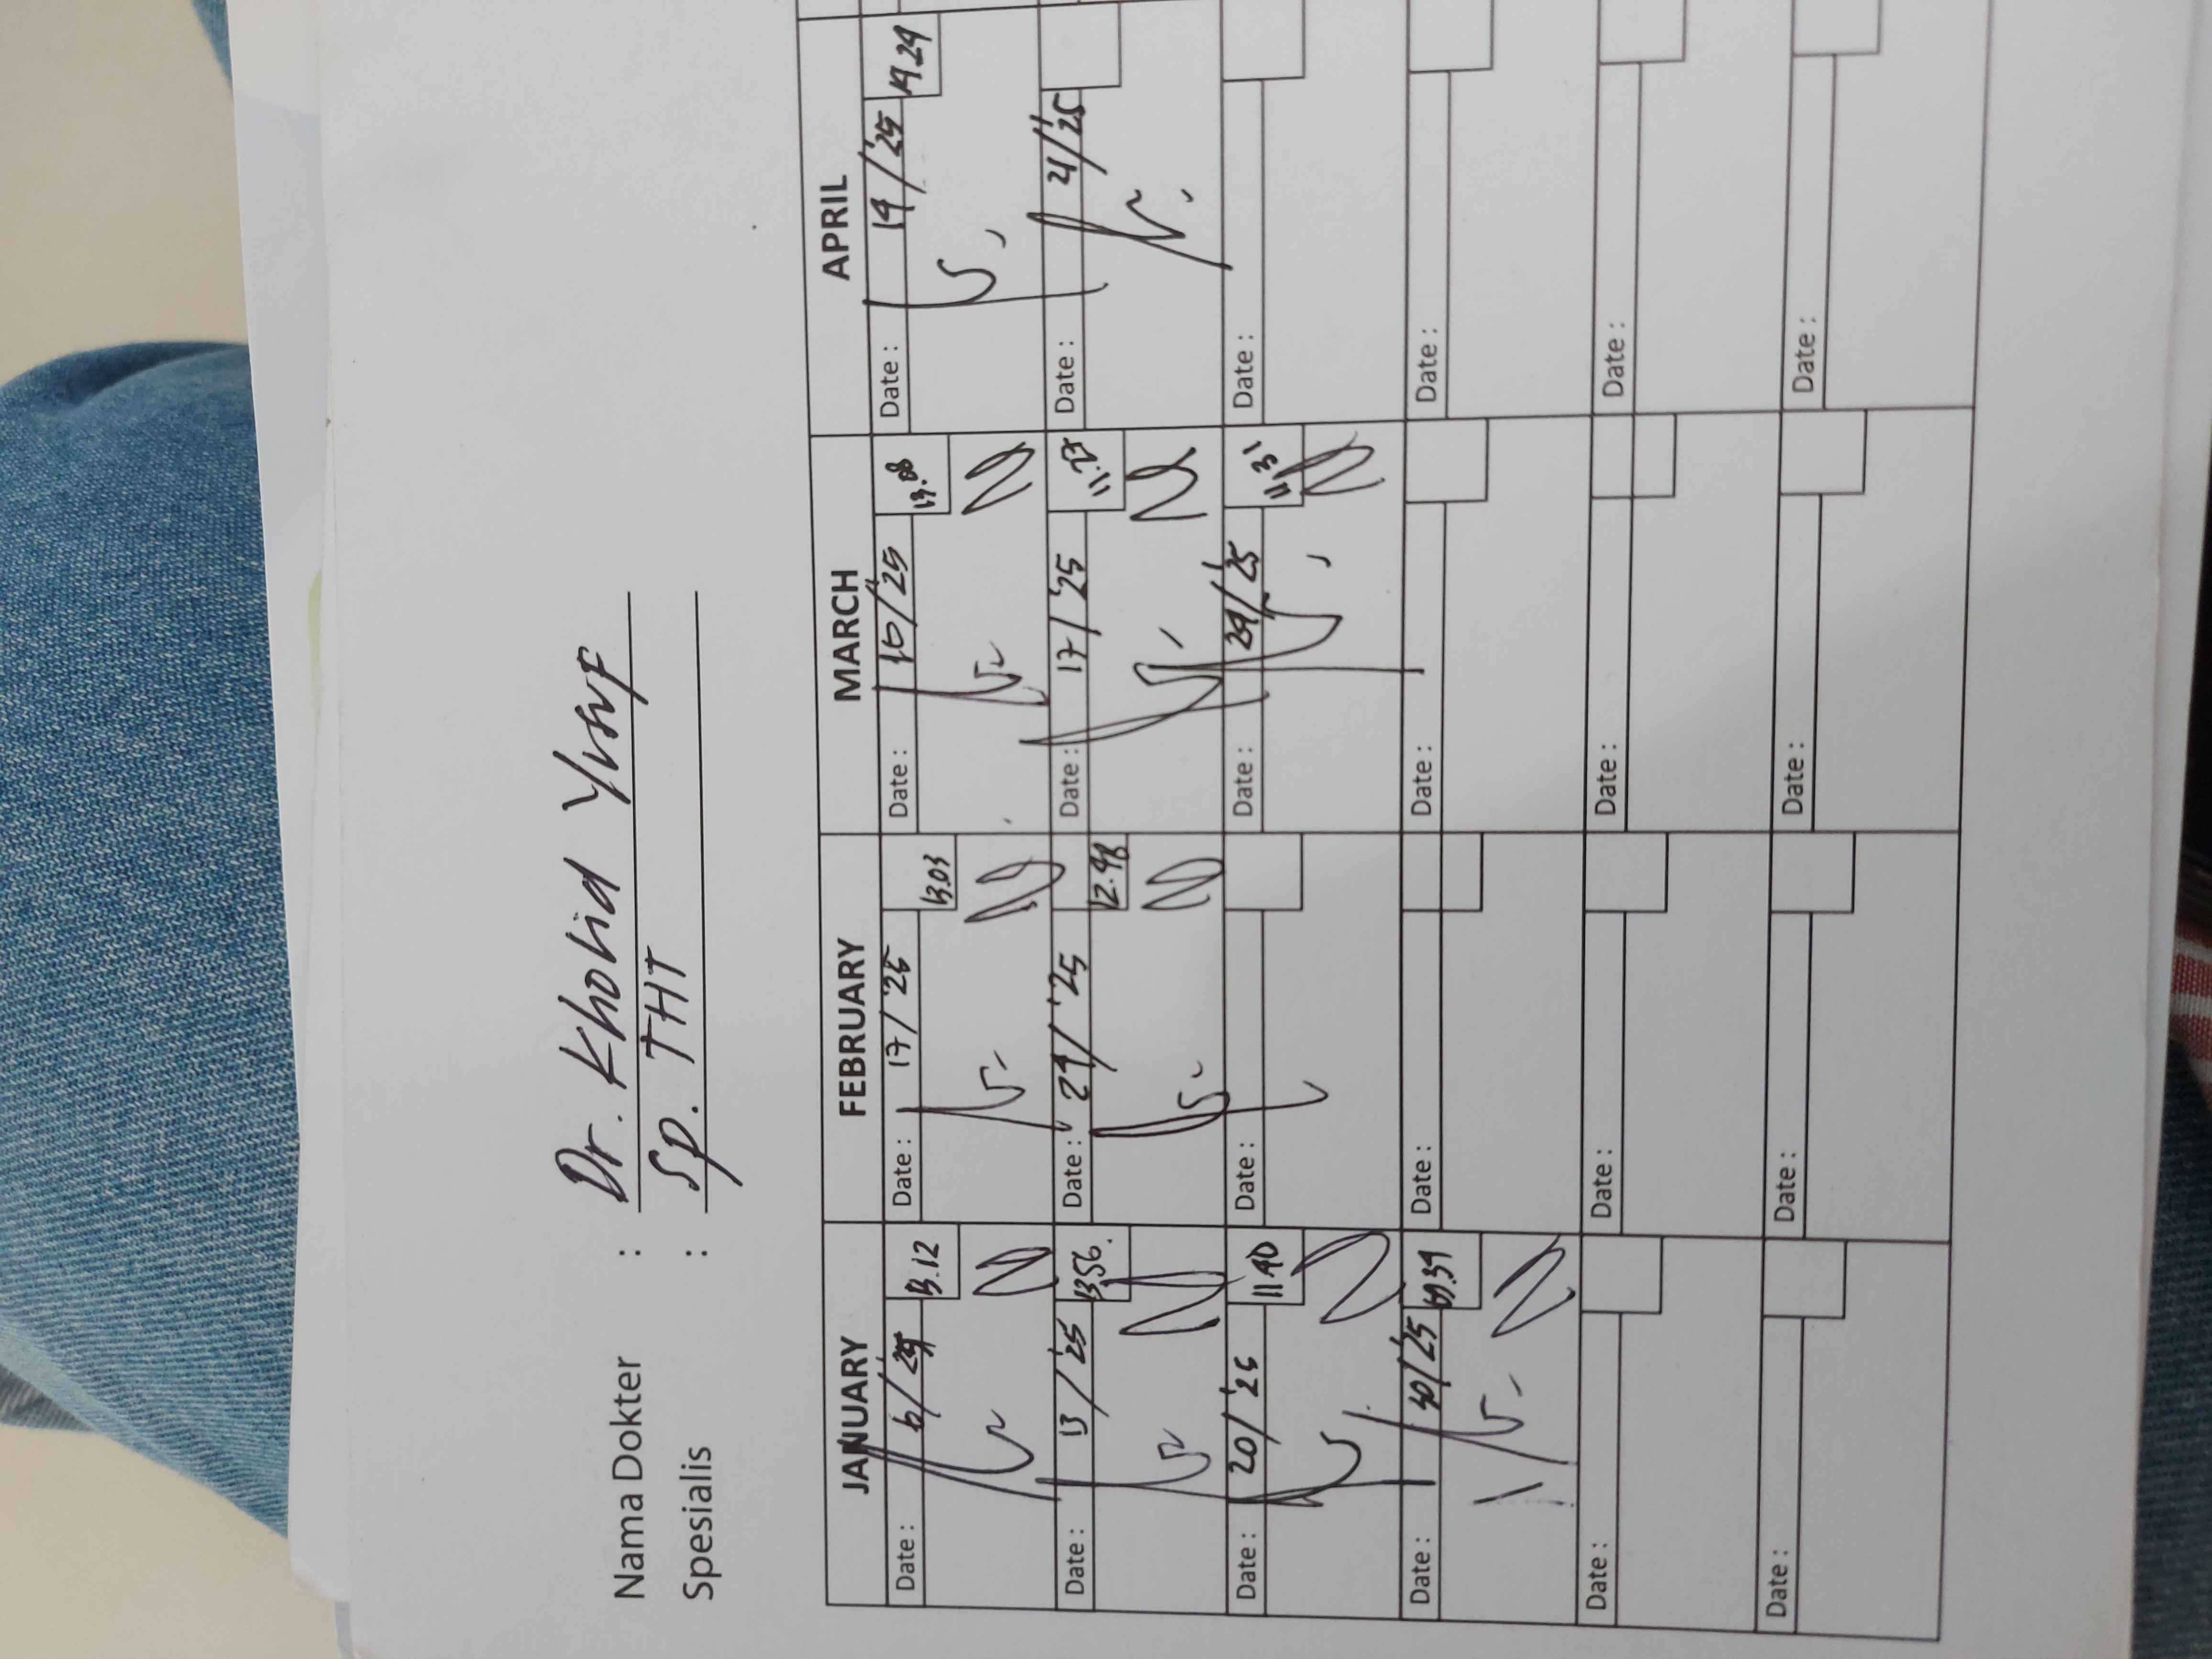 Nama Dokter : Dr. Kholid Yusuf
Spesialis : Sp. THT
JANUARY FEBRUARY MARCH APRIL
Date : 6/'25 13.12 Date : 17/'25 13.03 Date : 10/'25 13.08 Date : 14/'25 14.24
Date : 13/'25 13.56. Date : 24/'25 12.48 Date : 17/'25 11.27 Date : 21/'25
Date : 20/'25 11.40 Date : Date : 24/'25 11.31 Date :
Date : 30/'25 Date : Date : Date :
Date : Date : Date : Date :
Date : Date : Date : Date :